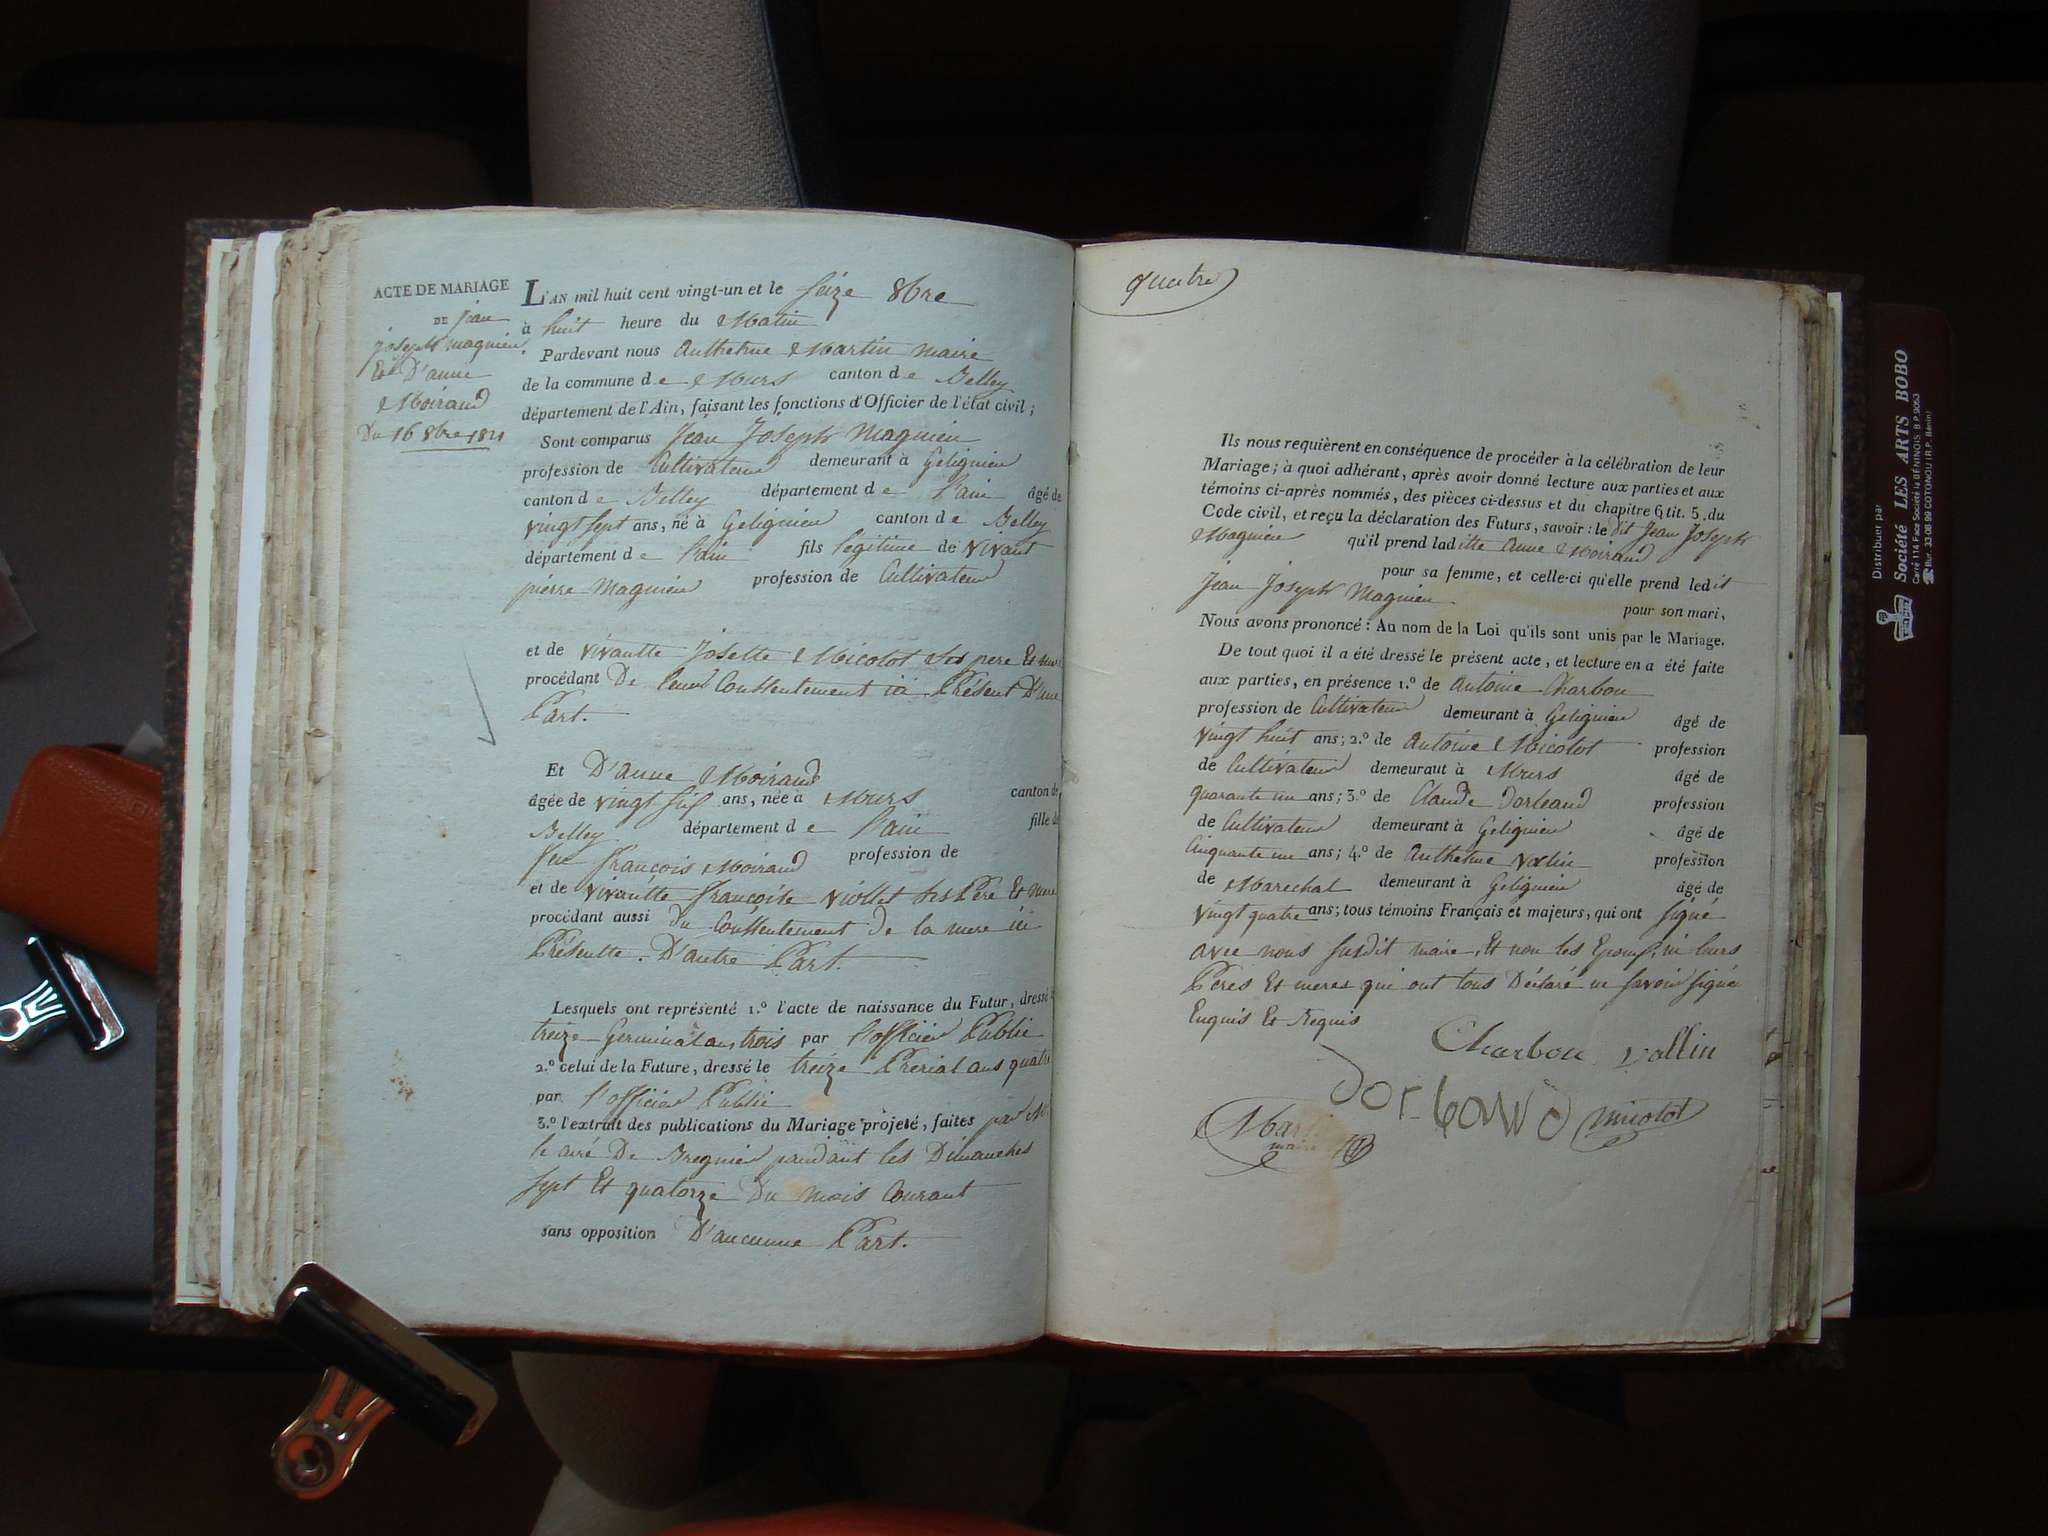 ACTE DE MARIAGE
DE Jean
joseph magnien
Et D'anne
Moirand
Du 16 8bre 1821
L'AN mil huit cent vingt-un et le Seize 8bre
à huit heure du Matin
Pardevant nous Anthelme Martin maire
de la commune de Murs canton de Belley
département de l'Ain, faisant les fonctions d'Officier de l'état civil;
Sont comparus Jean Joseph Magnien
profession de Cultivateur demeurant à Gelignieu
canton de Belley département de l'ain âgé de
vingt sept ans, né à Gelignieu canton de Belley
département de l'ain fils legitime de vivant
pierre Magnien profession de Cultivateur
et de vivantte Josette Micolot Ses pere Et mere
procédant De leur Consentement ici Présent D'une
Part.
Et D'anne Moirand
âgée de vingt six ans, née à Murs canton de
Belley département de l'ain fille de
feu françois Moirand profession de
et de vivantte françoise viollet ses Père Et mere
procédant aussi du Consentement de la mere ici
Présentte. D'autre Part.
Lesquels ont représenté 1.º l'acte de naissance du Futur, dressé le
treize Germinal an trois par l'officier Public
2.º celui de la Future, dressé le treize Prerial ans quatre
par l'officier Public
3.º l'extrait des publications du Mariage projeté, faites par M.
le airé De Bregnier pandant les Dimanches
sept Et quatorze Du mois Courant
sans opposition D'aucunne Part.
quatre
Ils nous requièrent en conséquence de procéder à la célébration de leur
Mariage; à quoi adhérant, après avoir donné lecture aux parties et aux
témoins ci-après nommés, des pièces ci-dessus et du chapitre 6, tit. 5, du
Code civil, et reçu la déclaration des Futurs, savoir: le dit Jean Joseph
Magnien qu'il prend laditte Anne Moirand
pour sa femme, et celle-ci qu'elle prend ledit
Jean Joseph Magnien
pour son mari,
Nous avons prononcé: Au nom de la Loi qu'ils sont unis par le Mariage.
De tout quoi il a été dressé le présent acte, et lecture en a été faite
aux parties, en présence 1.º de Antoine Charbon
profession de Cultivateur demeurant à Gelignieu âgé de
vingt huit ans; 2.º de Antoine Micolot profession
de Cultivateur demeurant à Murs âgé de
quarante un ans; 3.º de Claude Dorleand profession
de Cultivateur demeurant à Gelignieu âgé de
Cinquante un ans; 4.º de Anthelme Valin profession
de Marechal demeurant à Gelignieu âgé de
vingt quatre ans; tous témoins Français et majeurs, qui ont signé
avec nous susdit maire, Et non les Epoux, ni leurs
Pères Et meres qui ont tous Déclaré ne savoir signé
Enquis Et Requis
Charbon vallin
micolot
maire
Distribuer par
Société LES ARTS BOBO